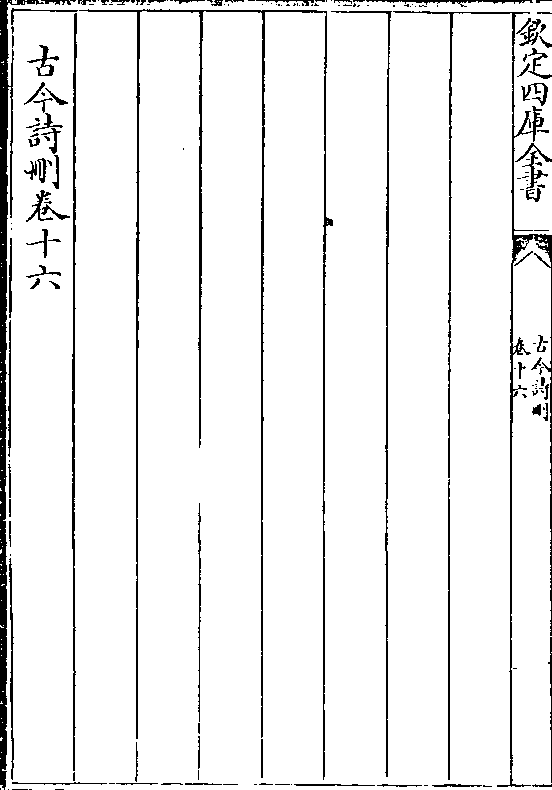 欽定四庫全書
古今詩刪
卷十六
古今詩刪卷十六